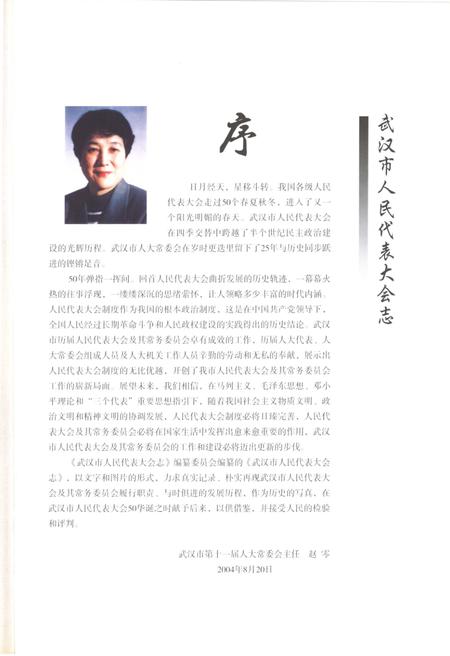 武汉市人民代表大会志
序
日月经天，星移斗转。我国各级人民
代表大会走过50个春夏秋冬，进入了又一
个阳光明媚的春天。武汉市人民代表大会
在四季交替中跨越了半个世纪民主政治建
设的光辉历程。武汉市人大常委会在岁时更迭里留下了25年与历史同步跃
进的铿锵足音。
50年弹指一挥间。回首人民代表大会曲折发展的历史轨迹，一幕幕火
热的往事浮现，一缕缕深沉的思绪萦怀，让人领略多少丰富的时代内涵。
人民代表大会制度作为我国的根本政治制度，这是在中国共产党领导下，
全国人民经过长期革命斗争和人民政权建设的实践得出的历史结论。武汉
市历届人民代表大会及其常务委员会卓有成效的工作，历届人大代表、人
大常委会组成人员及人大机关工作人员辛勤的劳动和无私的奉献，展示出
人民代表大会制度的无比优越，开创了我市人民代表大会及其常务委员会
工作的崭新局面。展望未来，我们相信，在马列主义、毛泽东思想、邓小
平理论和“三个代表”重要思想指引下，随着我国社会主义物质文明、政
治文明和精神文明的协调发展，人民代表大会制度必将日臻完善，人民代
表大会及其常务委员会必将在国家生活中发挥出愈来愈重要的作用，武汉
市人民代表大会及其常务委员会的工作和建设必将迈出更新的步伐。
《武汉市人民代表大会志》编纂委员会编纂的《武汉市人民代表大会
志》，以文字和图片的形式，力求真实记录、朴实再现武汉市人民代表大
会及其常务委员会履行职责、与时俱进的发展历程，作为历史的写真，在
武汉市人民代表大会50华诞之时献予后来，以供借鉴，并接受人民的检验
和评判。
武汉市第十一届人大常委会主任 赵 零
2004年8月20日